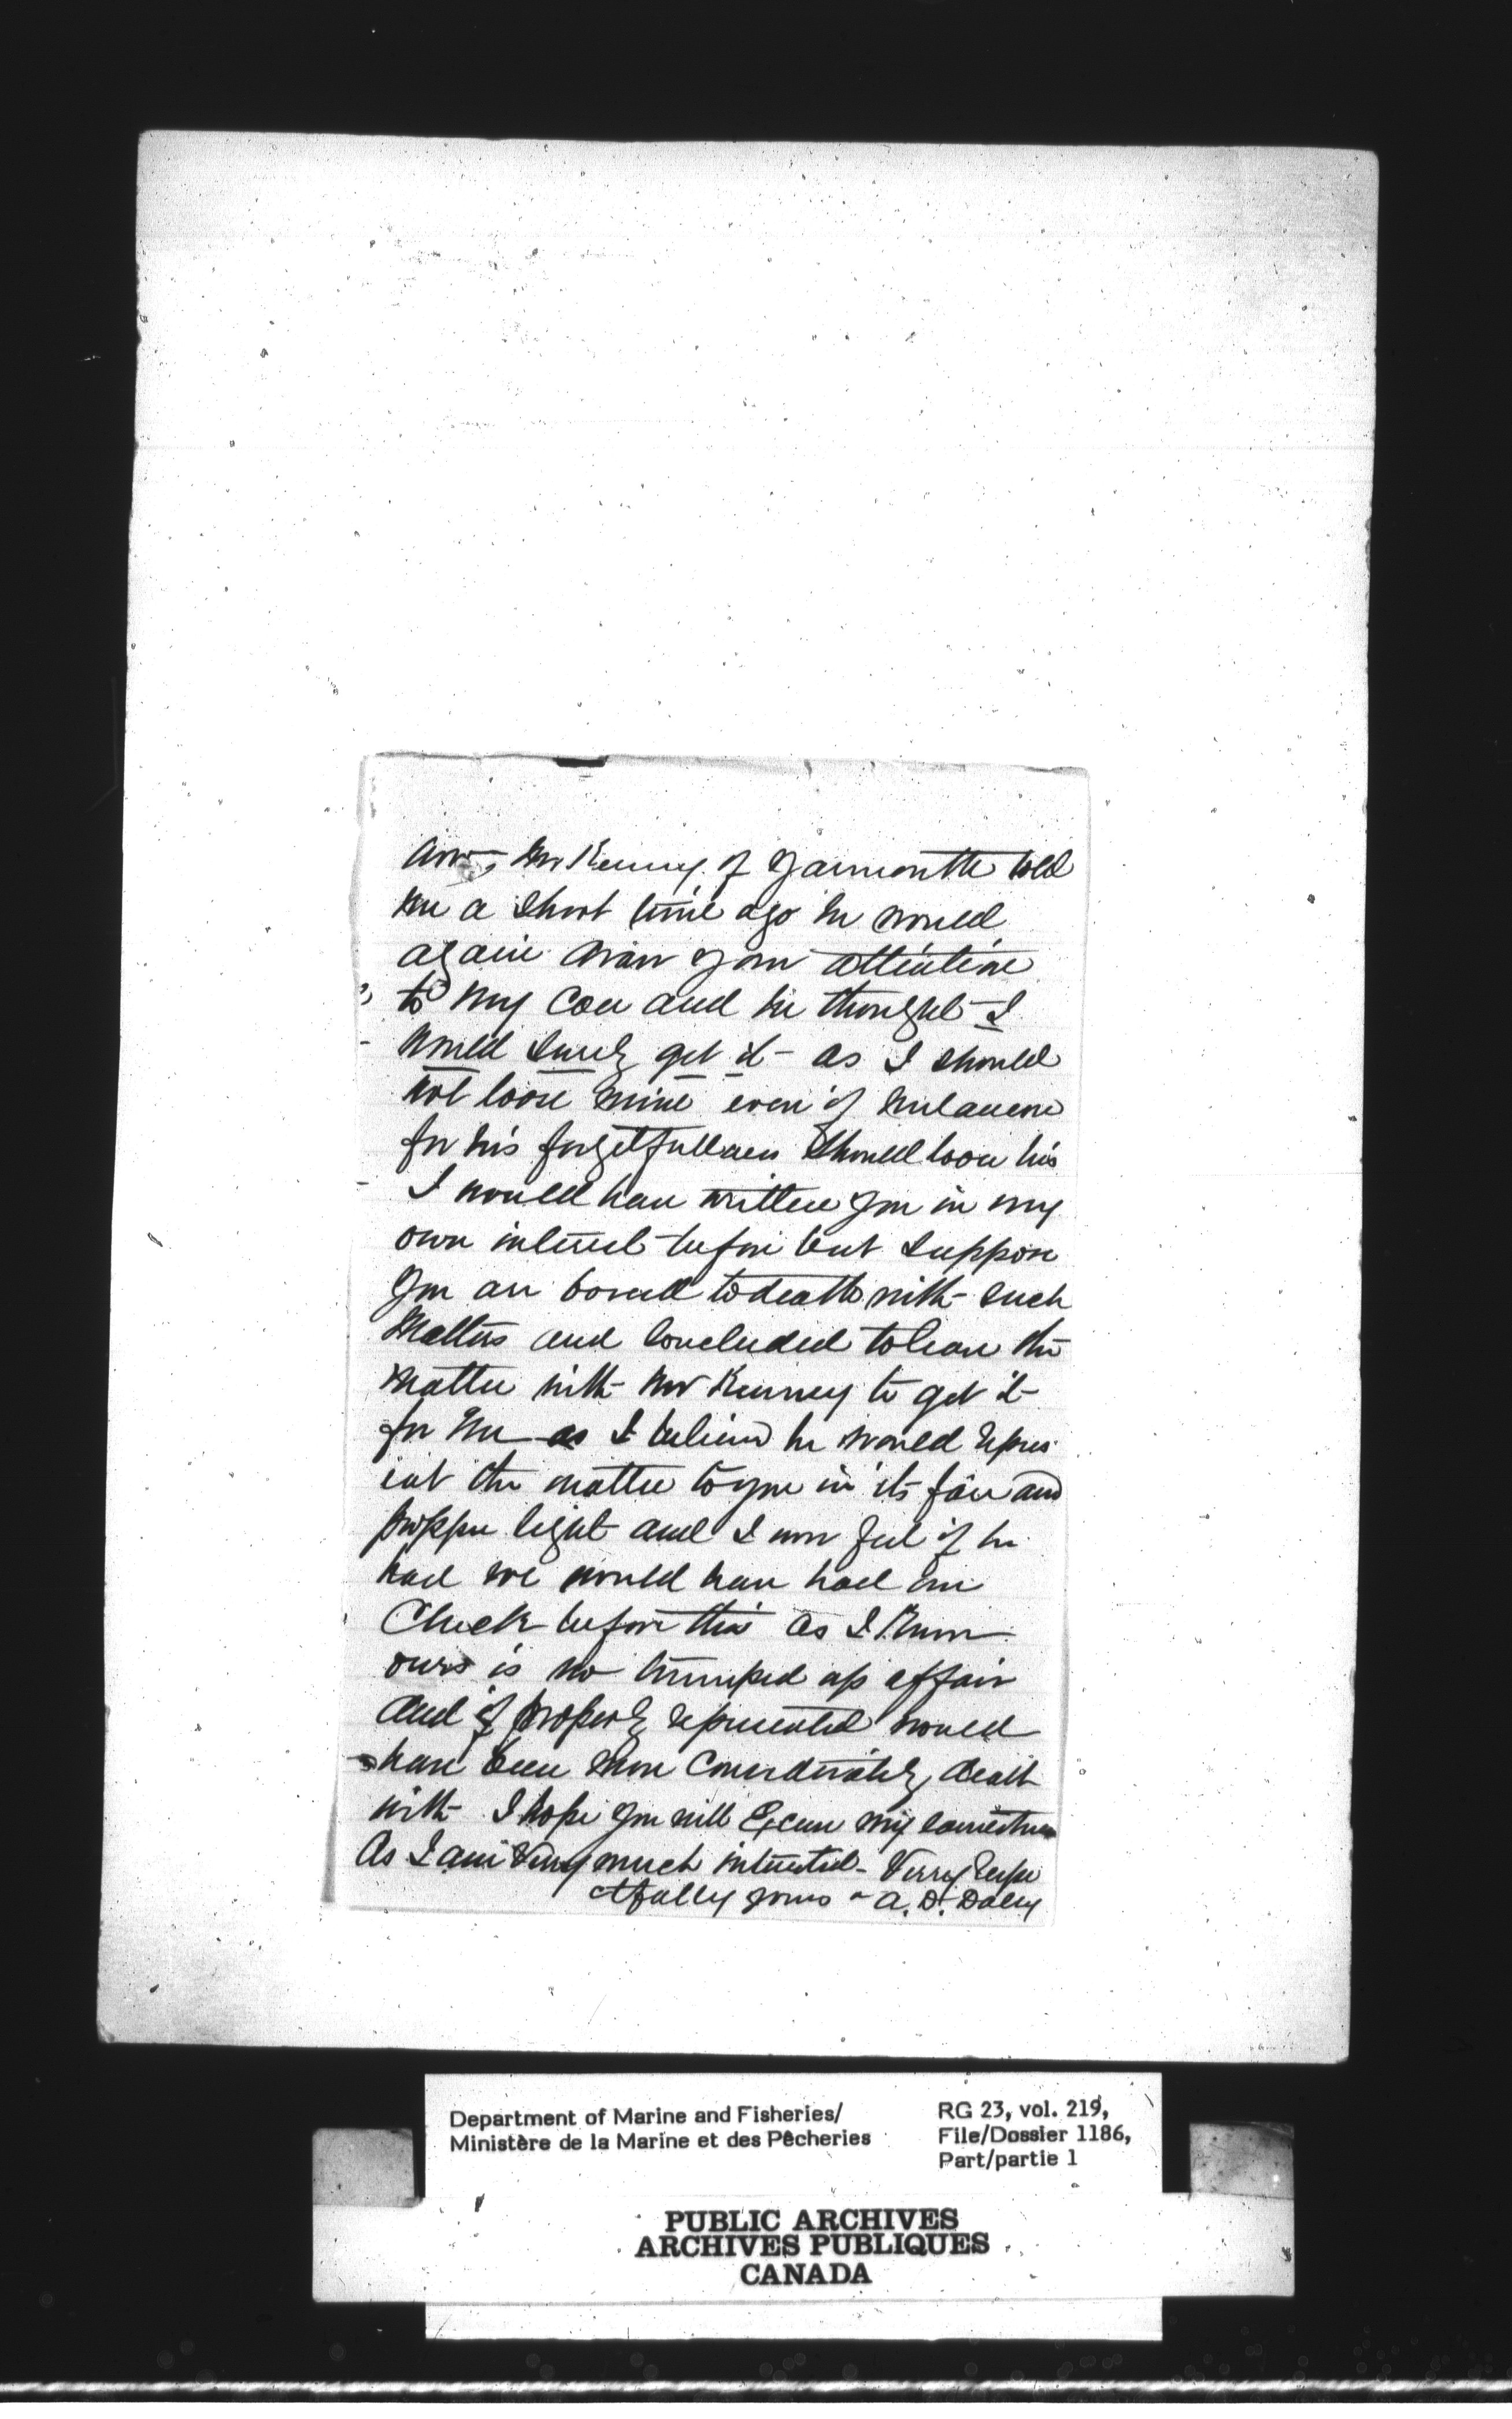 Mr Kenney of Yarmouth told
me a short time ago he would
again draw your attention
to my case and he thought I
would surely get it - as I should
not loose mine even if
for his forgetfullness should loose his
I would have written you in my
own interest before but suppose
you are bored to death with such
matters and concluded to leave the
matter with Mr Kenney to get it
for me as I believed he would repres
ent the matter to you in its fair and
propper light and I now feel if he
had we would have had our
Check before this as I know
ours is no trumped up affair
and if properly represented would
have been more considerately dealt
with - I hope you will Excuse my
As I am very much interested - Verry Respe
ctfully yours - A. D. Daley
Department of Marine and Fisheries/
Ministère de la Marine et des Pêcheries
RG 23, vol. 219,
File/Dossier 1186,
Part/partie 1
PUBLIC ARCHIVES
ARCHIVES PUBLIQUES
CANADA